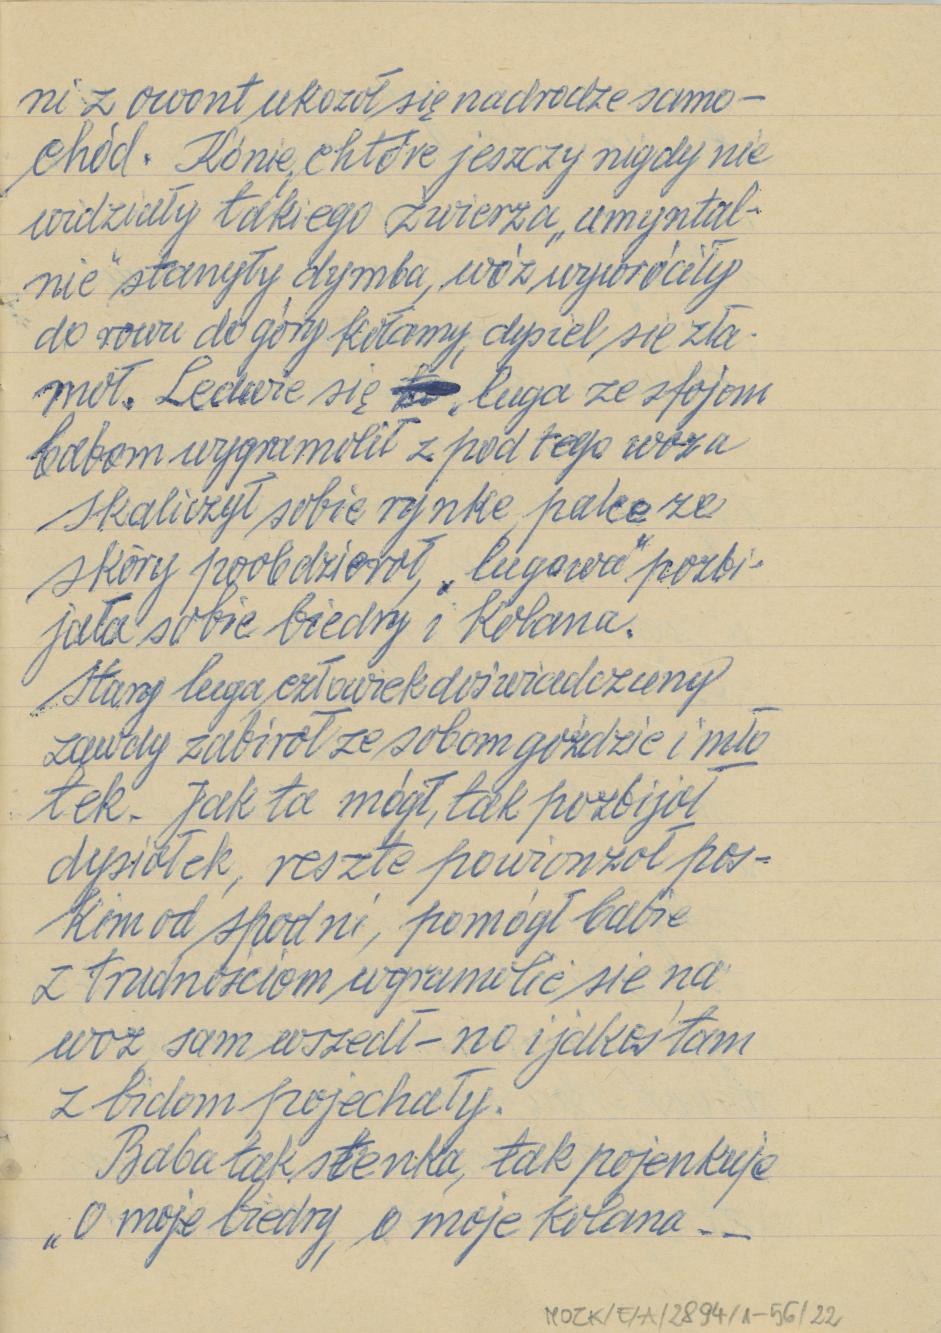 ni z owont ukozoł się nadrodze samo-
chód. Kónie, chtóre jeszczy nigdy nie
widziały takiego zwierza "amyntal-
nie" stanyły dymba, wóz wywróciły
do rowu do góry kołamy, dysiel się zła-
moł. Ledwie się "luga ze sfojom
babom wygramolił z pod tego woza
skaliczył sobie rynke, palce ze
skóry poobdzioroł, "lugowa" pozbi-
jała sobie biedry i kolana.
Stary luga, człowiek doświadczuny
zawdy zabiroł ze sobom goździe i mło
tek. Jak ta mógł, tak pozbijoł
dysiołek, reszte powionzoł pos-
kim od spodni, pomógł babie
z trudnościom wgramolić sie na
woz, sam wszedł - no i jakoś tam
z bidom pojechały.
Baba tak stenka, tak pojenkuje
"O moje biedry, o moje kolana - -
MOZK/E/A/2894/1-56/22